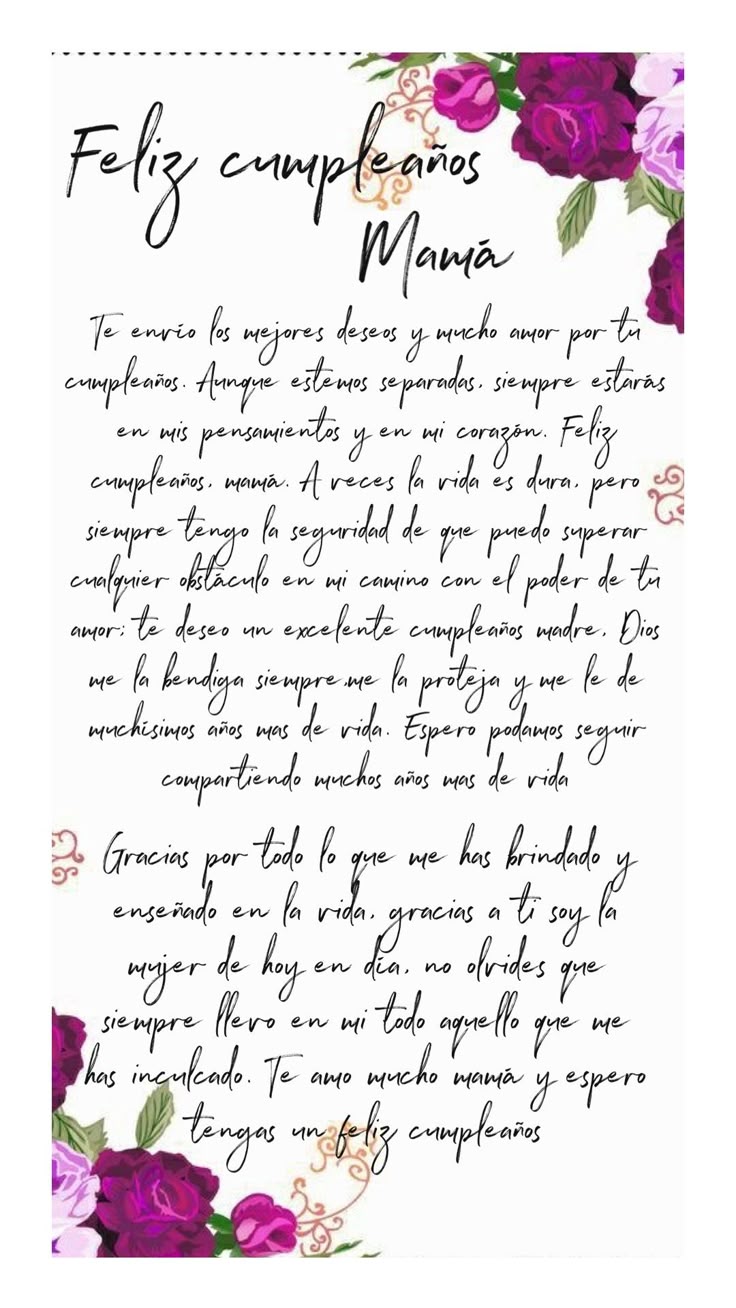 Feliz cumpleaños
Mamá
Te envío los mejores deseos y mucho amor por tu
cumpleaños. Aunque estemos separadas, siempre estarás
en mis pensamientos y en mi corazón. Feliz
cumpleaños, mamá. A veces la vida es dura, pero
siempre tengo la seguridad de que puedo superar
cualquier obstáculo en mi camino con el poder de tu
amor; te deseo un excelente cumpleaños madre, Dios
me la bendiga siempre,me la proteja y me le de
muchísimos años mas de vida. Espero podamos seguir
compartiendo muchos años mas de vida
Gracias por todo lo que me has brindado y
enseñado en la vida, gracias a ti soy la
mujer de hoy en día, no olvides que
siempre llevo en mi todo aquello que me
has inculcado. Te amo mucho mamá y espero
tengas un feliz cumpleaños